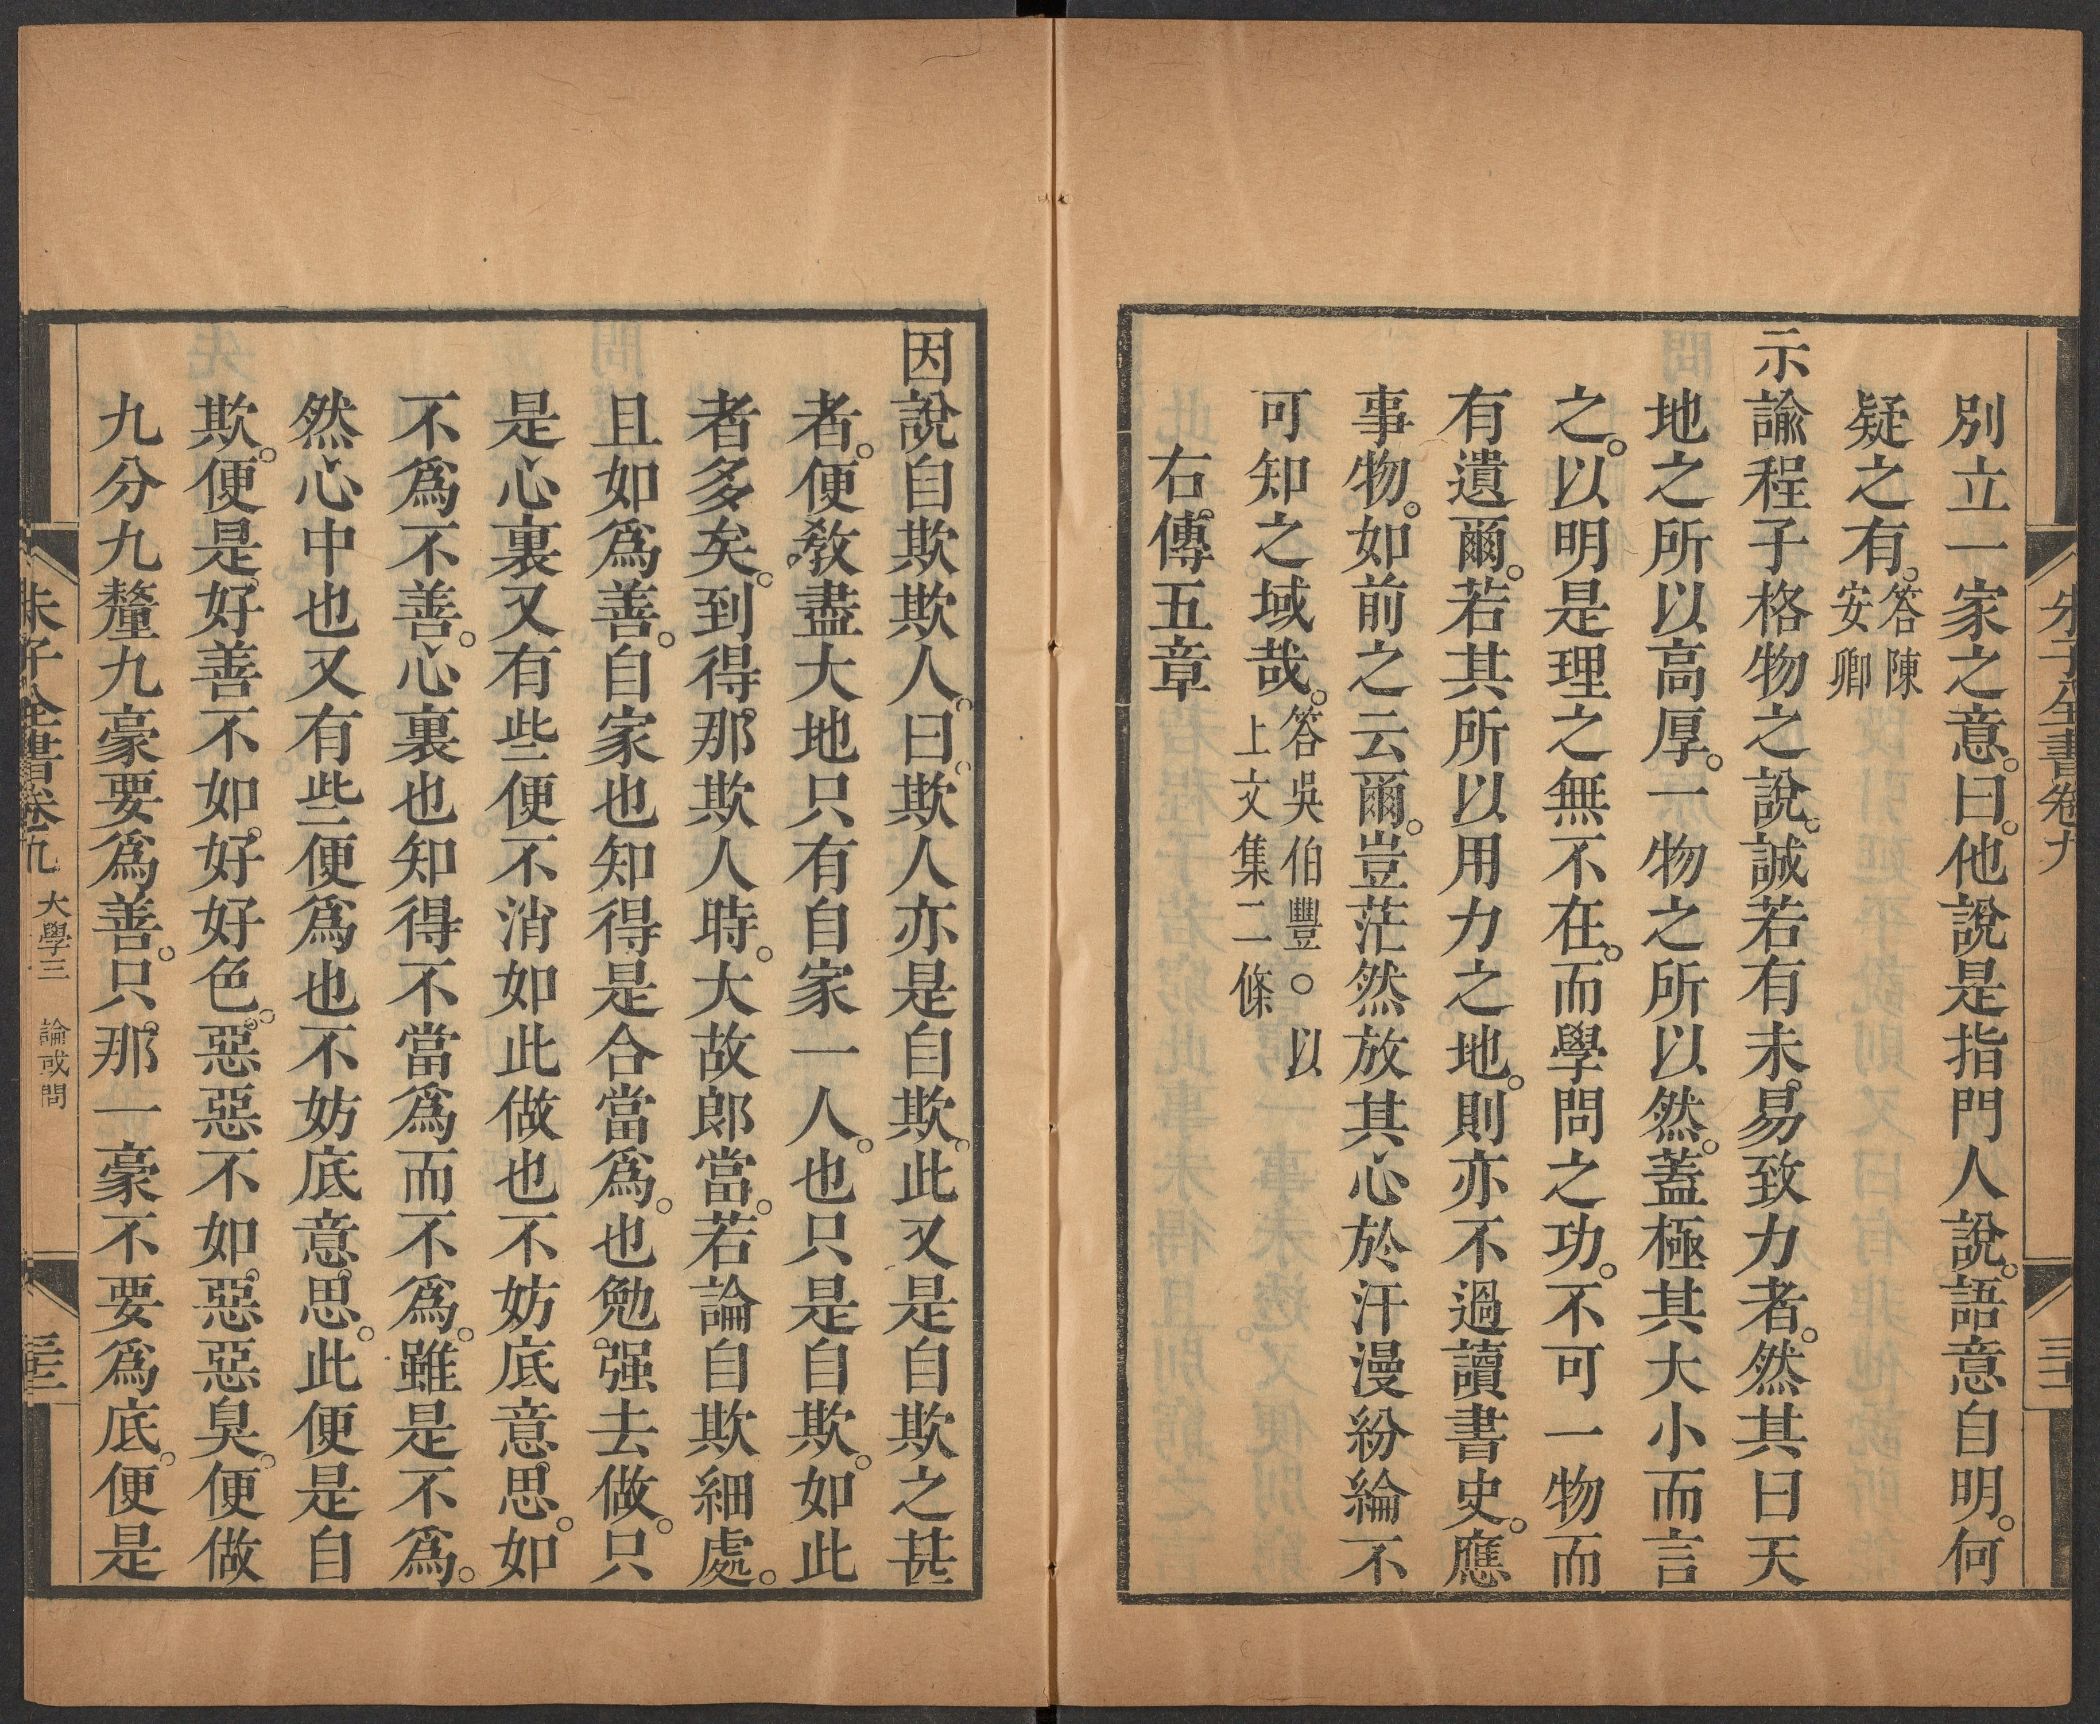 朱子全書卷九
三十一
別立一家之意。曰。他說是指門人說。語意自明。何
疑之有。答陳
安卿
示諭程子格物之說。誠若有未易致力者。然其曰天
地之所以高厚。一物之所以然。蓋極其大小而言
之。以明是理之無不在。而學問之功。不可一物而
有遺爾。若其所以用力之地。則亦不過讀書史。應
事物。如前之云爾。豈茫然放其心於汗漫紛綸不
可知之域哉。答吳伯豐。以
上文集二條
右傳五章
因說自欺欺人。曰。欺人亦是自欺。此又是自欺之甚
者。便教盡大地只有自家一人。也只是自欺。如此
者多矣。到得那欺人時。大故郎當。若論自欺細處。
且如為善。自家也知得是合當為。也勉强去做。只
是心裏又有些便不消如此做也不妨底意思。如
不為不善。心裏也知得不當為而不為。雖是不為。
然心中也又有些便為也不妨底意思。此便是自
欺。便是好善不如好好色。惡惡不如惡惡臭。便做
九分九釐九豪要為善。只那一豪不要為底。便是
朱子全書卷九 大學三 論或問
三十二